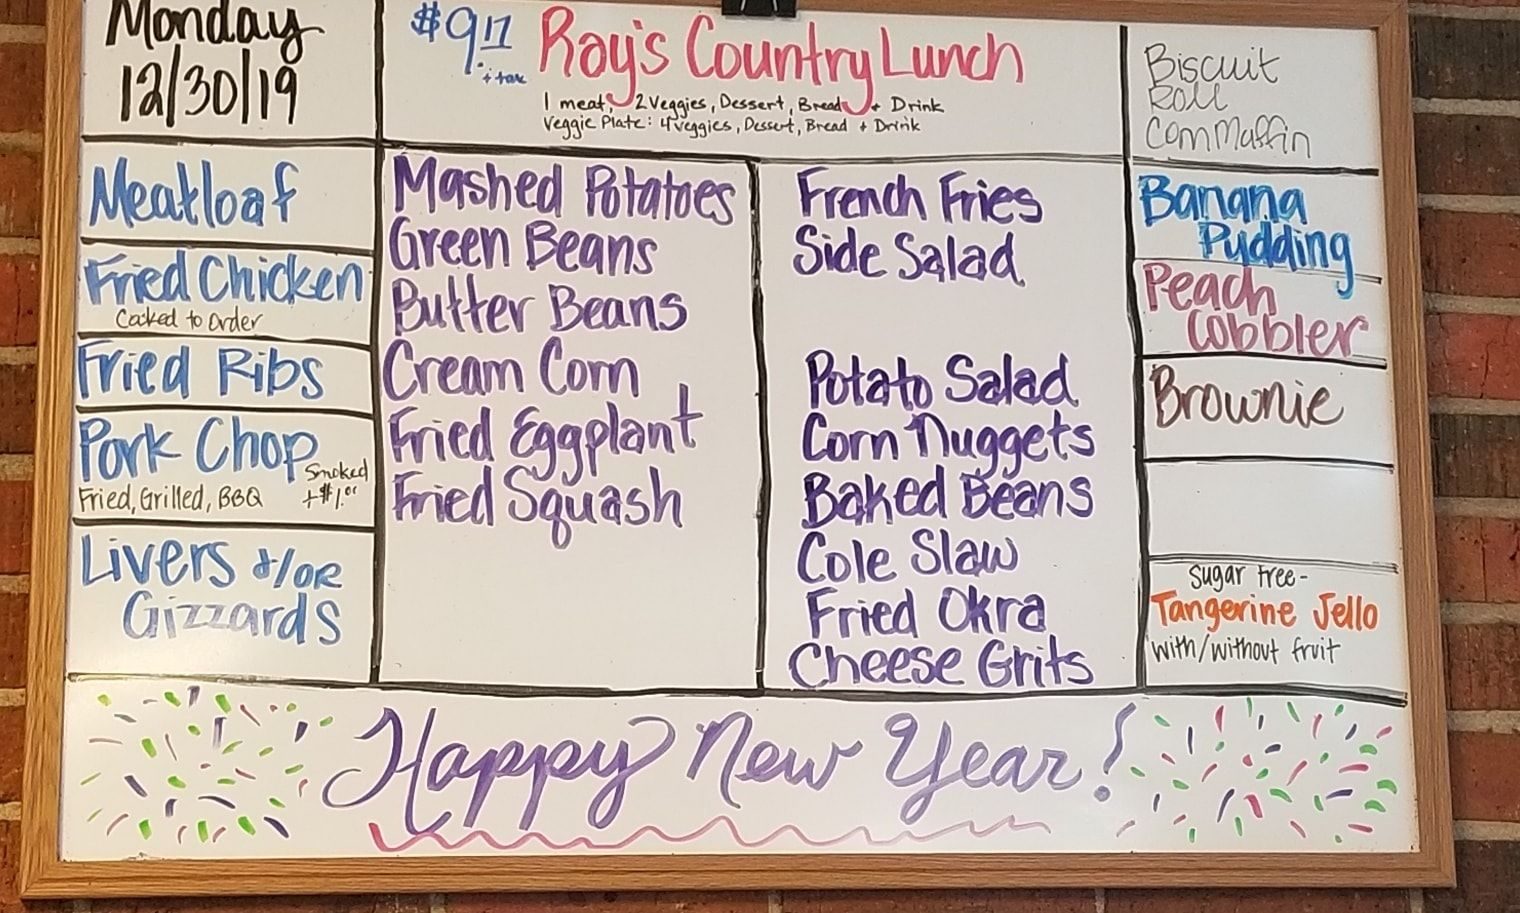 Monday
12/30/19
$9.17
+ tax
Ray's Country Lunch
1 meat, 2 Veggies, Dessert, Bread + Drink
Veggie Plate: 4 veggies, Dessert, Bread + Drink
Biscuit
Roll
Corn Muffin
Meatloaf
Fried Chicken
Cooked to Order
Fried Ribs
Pork Chop
Smoked
+$1.00
Fried, Grilled, BBQ
Livers +/OR
Gizzards
Mashed Potatoes
Green Beans
Butter Beans
Cream Corn
Fried Eggplant
Fried Squash
French Fries
Side Salad
Potato Salad
Corn Nuggets
Baked Beans
Cole Slaw
Fried Okra
Cheese Grits
Banana
Pudding
Peach
Cobbler
Brownie
Sugar free-
Tangerine Jello
with/without fruit
Happy New Year!